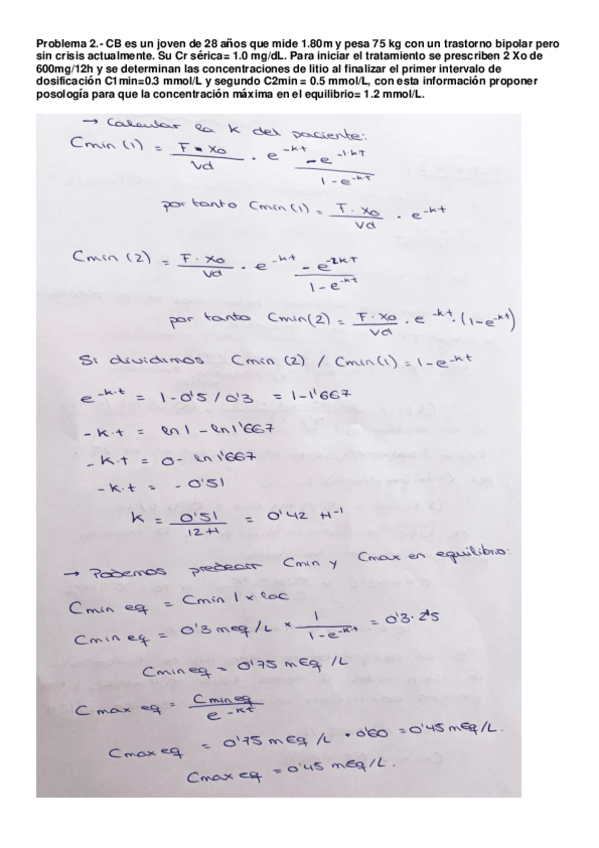 Problema 2.- CB es un joven de 28 años que mide 1.80m y pesa 75 kg con un trastorno bipolar pero
sin crisis actualmente. Su Cr sérica= 1.0 mg/dL. Para iniciar el tratamiento se prescriben 2 Xo de
600mg/12h y se determinan las concentraciones de litio al finalizar el primer intervalo de
dosificación C1min=0.3 mmol/L y segundo C2min = 0.5 mmol/L, con esta información proponer
posología para que la concentración máxima en el equilibrio= 1.2 mmol/L.
→ Calcular la K del paciente:
Cmin (1) = F · Xo / Vd · e^-kt - e^-1·kT / 1-e^-kT
por tanto Cmin (1) = F · Xo / Vd · e^-kt
Cmin (2) = F · Xo / Vd · e^-kt - e^-2kT / 1-e^-kt
por tanto Cmin(2) = F · Xo / Vd · e^-kt · (1-e^-kt)
Si dividimos Cmin (2) / Cmin (1) = 1-e^-kt
e^-k·t = 1-0'5/0'3 = 1-1'667
-k·t = ln1 - ln1'667
-k·t = 0- ln1'667
-k·t = - 0'51
K = 0'51 / 12H = 0'42 H-1
→ Podemos predecir Cmin y Cmax en equilibrio:
Cmin eq = Cmin 1 x lac
Cmin eq = 0'3 meq/L x 1 / 1-e^-kt = 0'3·2'5
Cmin eq = 0'75 mEq /L
C max eq = Cmineq / e^-kt
Cmax eq = 0'75 mEq /L · 0'60 = 0'45 mEq/L.
Cmax eq = 0'45 mEq/L.